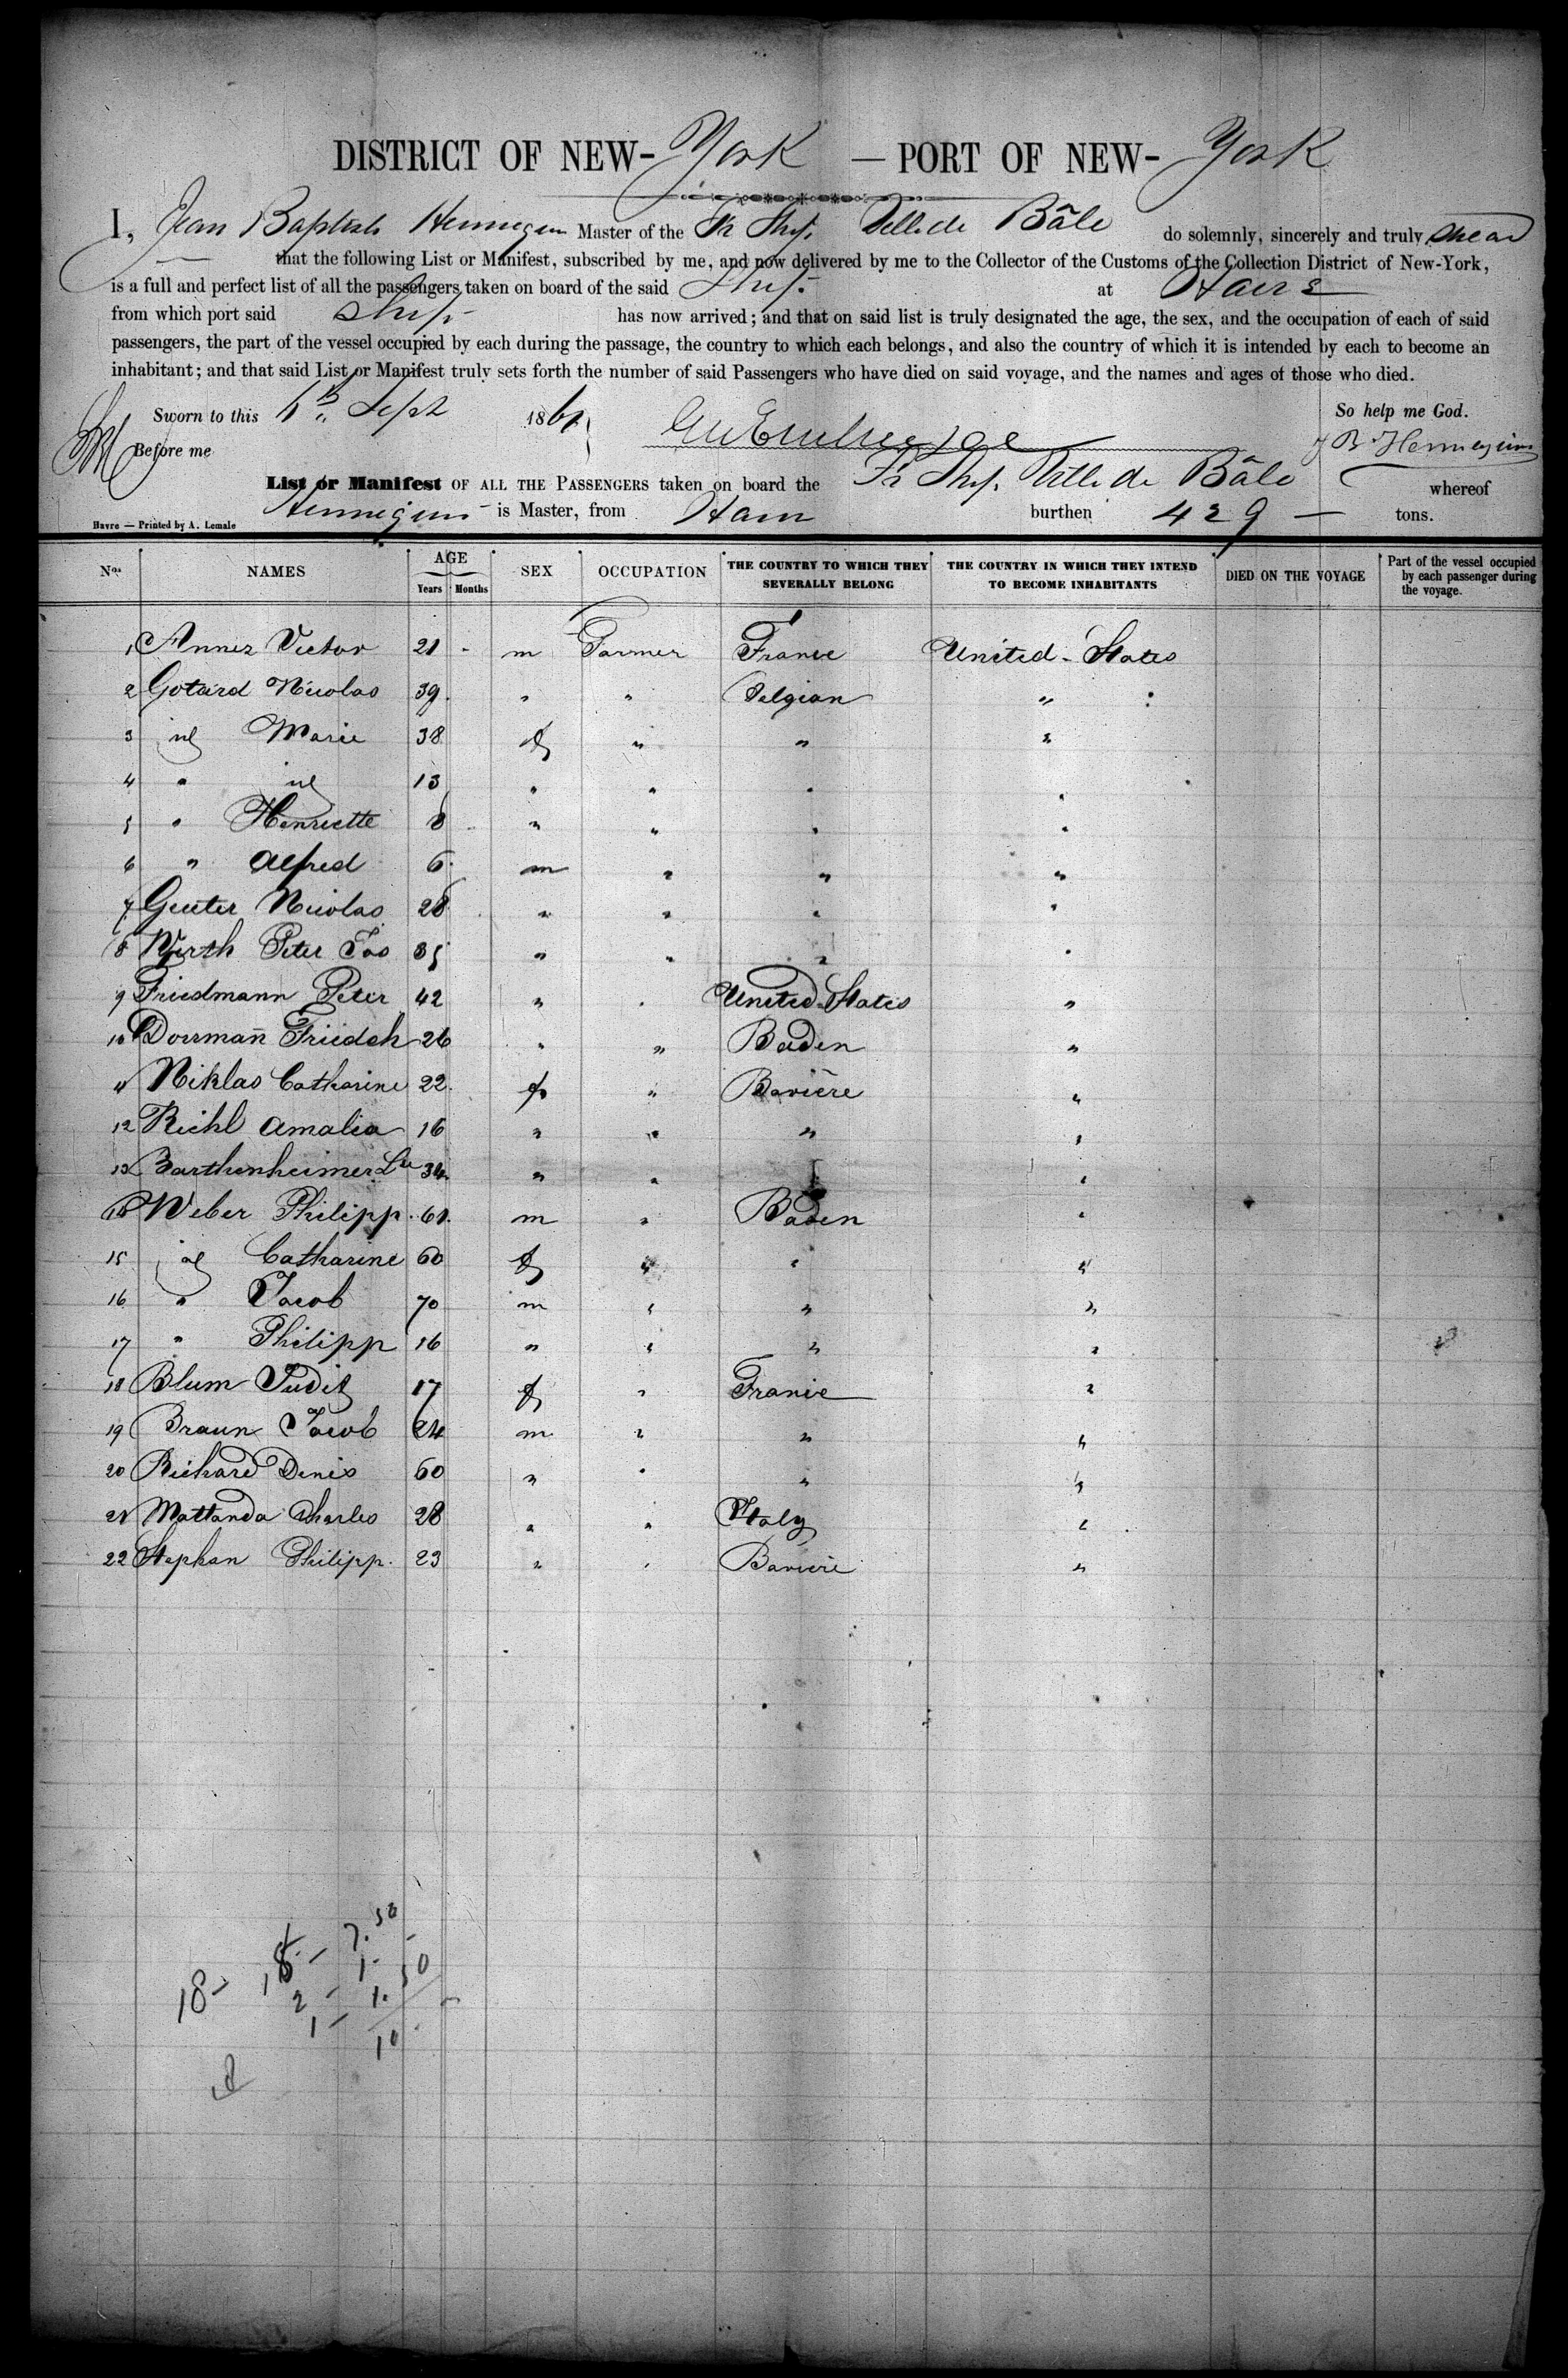 DISTRICT OF NEW- York — PORT OF NEW- York
I, Jean Baptiste Hennequin Master of the Fr Ship. Ville de Bâle do solemnly, sincerely and truly swear
that the following List or Manifest, subscribed by me, and now delivered by me to the Collector of the Customs of the Collection District of New-York,
is a full and perfect list of all the passengers taken on board of the said Ship. at Havre
from which port said Ship has now arrived; and that on said list is truly designated the age, the sex, and the occupation of each of said
passengers, the part of the vessel occupied by each during the passage, the country to which each belongs, and also the country of which it is intended by each to become an
inhabitant; and that said List or Manifest truly sets forth the number of said Passengers who have died on said voyage, and the names and ages of those who died.
Sworn to this Sept 1861 So help me God.
Before me J B Hennequin
List or Manifest OF ALL THE PASSENGERS taken on board the Fr Ship. Ville de Bâle whereof
Hennequin is Master, from Havre burthen 429 — tons.
Havre — Printed by A. Lemale
Nos. NAMES AGE Years Months SEX OCCUPATION THE COUNTRY TO WHICH THEY SEVERALLY BELONG THE COUNTRY IN WHICH THEY INTEND TO BECOME INHABITANTS DIED ON THE VOYAGE Part of the vessel occupied by each passenger during the voyage.
1 Annez Victor 21 - m Farmer France United-States
2 Gotard Nicolas 39 " " Belgian "
3 id Marie 38 f " " "
4 " id 13 " " " "
5 " Henriette 8 " " " "
6 " Alfred 6 m " " "
7 Geuter Nicolas 28 " " " "
8 Wirth Peter Jos 35 " " " "
9 Friedmann Peter 42 " " United-States "
10 Dorrmañ Friedch 26 " " Baden "
11 Niklas Catharine 22 f " Bavière "
12 Riehl Amalia 16 " " " "
13 Barthenheimer Lse 34 " " " "
14 Weber Philipp 61 m " Baden "
15 id Catharine 60 f " " "
16 " Jacob 70 m " " "
17 " Philipp 16 " " " "
18 Blum Judit 17 f " France "
19 Braun Jacob 24 m " " "
20 Richard Denis 60 " " " "
21 Mattanda Charles 28 " " Italy "
22 Stephan Philipp. 23 " " Bavière "
18 - 15 - 7.50
2 - 1.
1 - 1.50
10